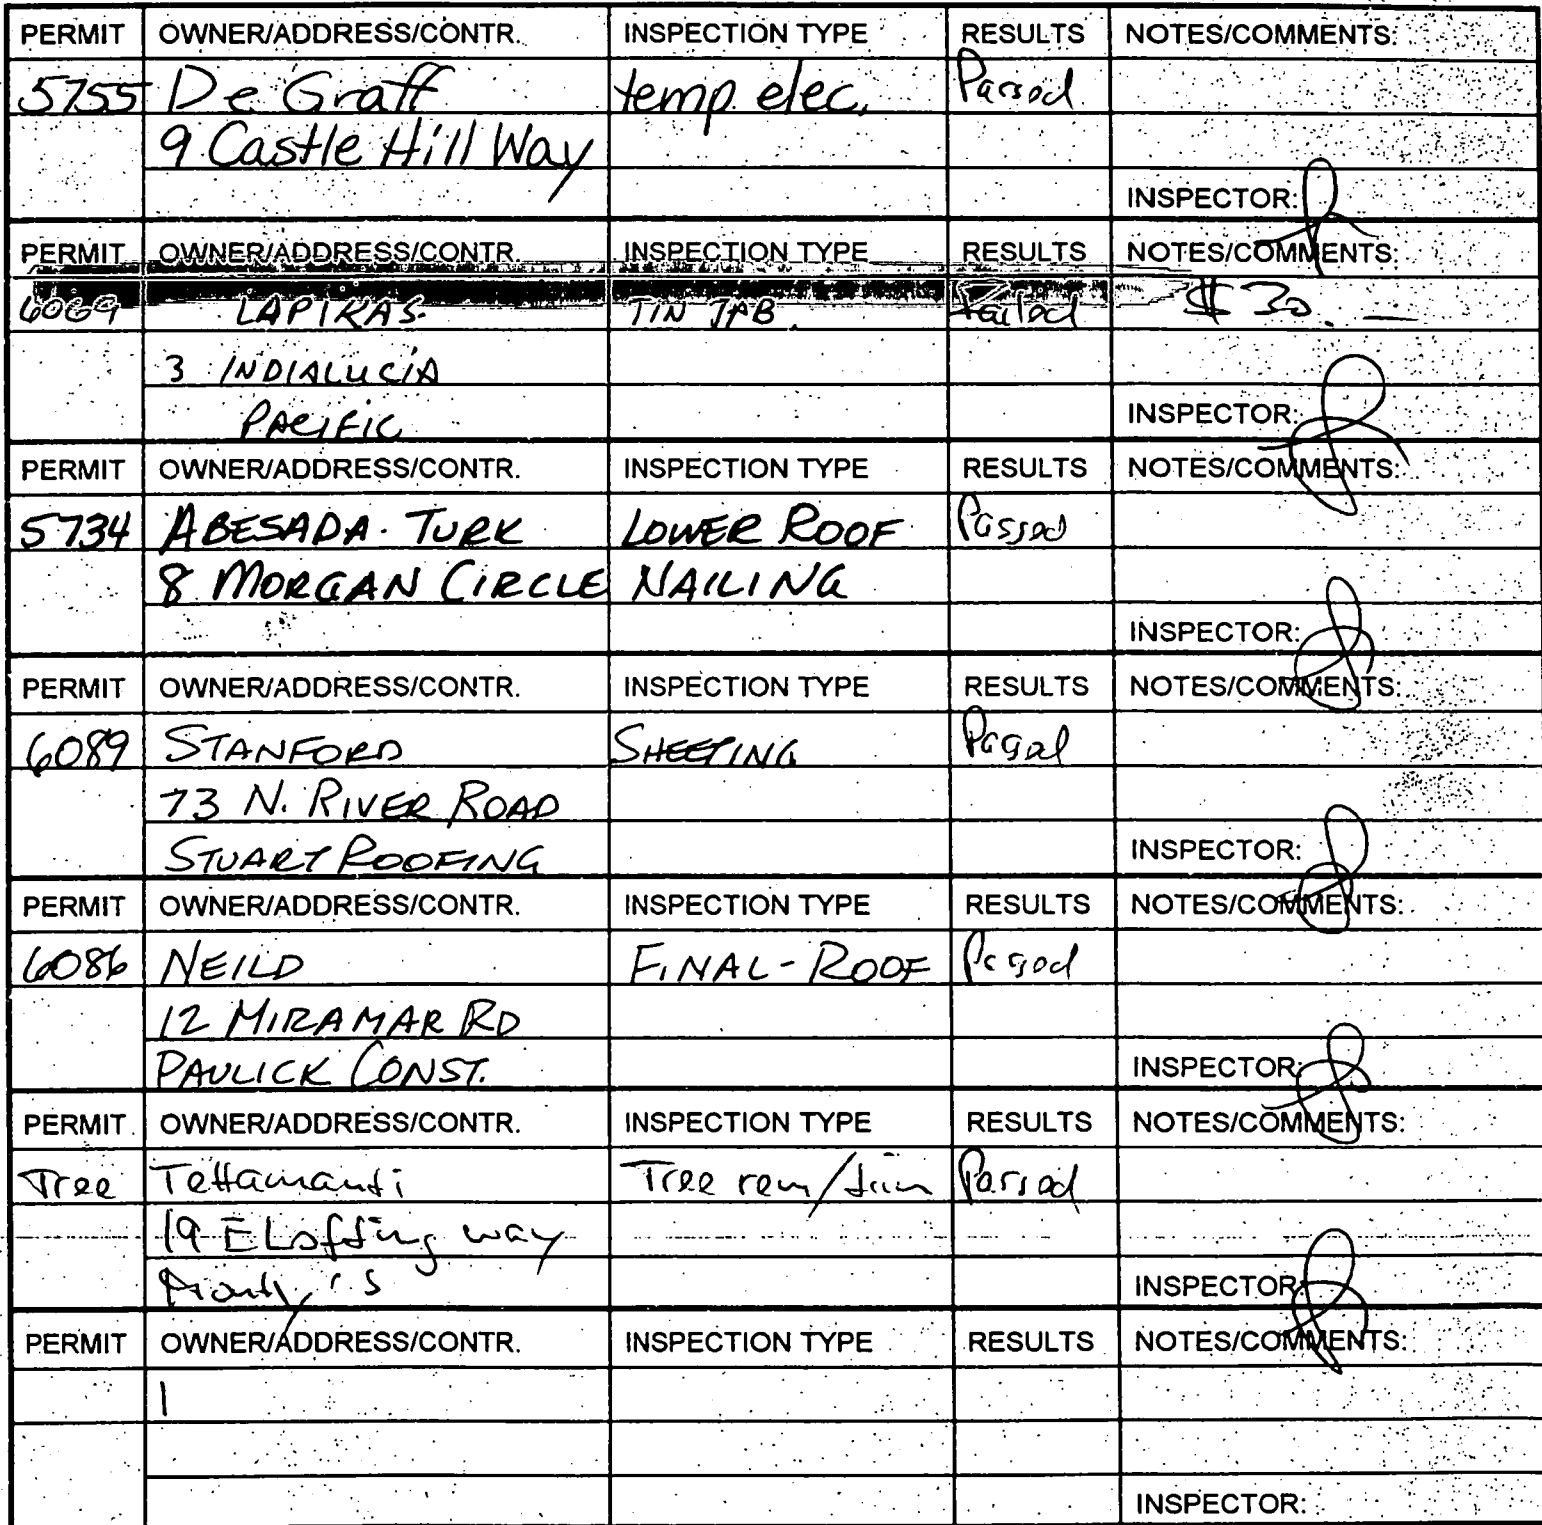 PERMIT OWNER/ADDRESS/CONTR. INSPECTION TYPE RESULTS NOTES/COMMENTS:
5755 De Graff temp elec. Passed
9 Castle Hill Way
INSPECTOR:
PERMIT OWNER/ADDRESS/CONTR. INSPECTION TYPE RESULTS NOTES/COMMENTS:
6069 LAPIKAS. TIN TAB Failed $30. —
3 INDIALUCIA
PACIFIC INSPECTOR:
PERMIT OWNER/ADDRESS/CONTR. INSPECTION TYPE RESULTS NOTES/COMMENTS:
5734 ABESADA. TURK LOWER ROOF Passed
8 MORGAN CIRCLE NAILING
INSPECTOR:
PERMIT OWNER/ADDRESS/CONTR. INSPECTION TYPE RESULTS NOTES/COMMENTS:
6089 STANFORD SHEETING Passed
73 N. RIVER ROAD
STUART ROOFING INSPECTOR:
PERMIT OWNER/ADDRESS/CONTR. INSPECTION TYPE RESULTS NOTES/COMMENTS:
6086 NEILD FINAL-ROOF Passed
12 MIRAMAR RD
PAULICK CONST. INSPECTOR:
PERMIT OWNER/ADDRESS/CONTR. INSPECTION TYPE RESULTS NOTES/COMMENTS:
Tree Tettamanti Tree rem/trim Passed
19 E Lofting way
INSPECTOR:
PERMIT OWNER/ADDRESS/CONTR. INSPECTION TYPE RESULTS NOTES/COMMENTS:
INSPECTOR: